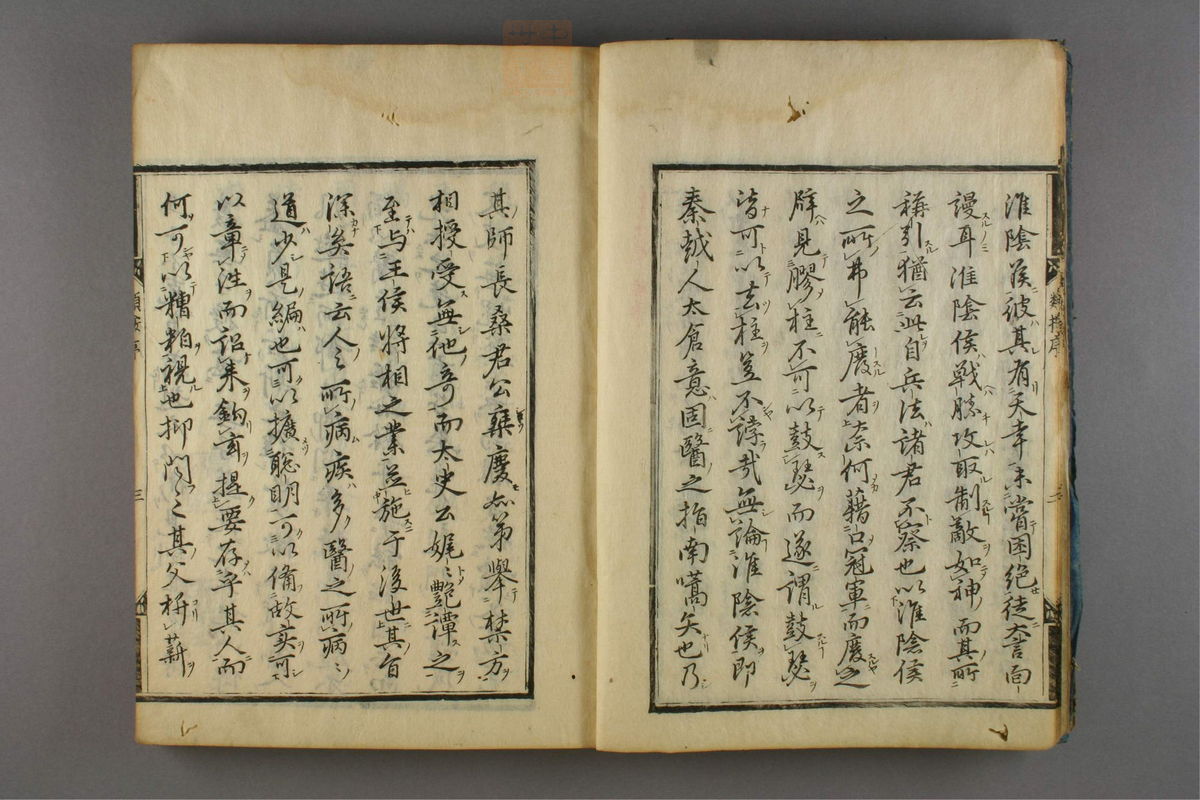 淮陰侯彼其有天幸未嘗困絶徒大言面
謾耳淮陰侯戰勝攻取制敵如神而其所
稱引猶云此自兵法諸君不察也以淮陰侯
之所弗能廢者奈何藉口冠軍而廢之
辟見膠柱不可以鼓瑟而遂謂鼓瑟
皆可以去柱豈不誖哉無論淮陰侯即
秦越人太倉意固醫之指南嚆矢也乃
類按序
二
其師長桑君公乘慶亦第舉禁方
相授受無他奇而太史公娓〻艷譚之
至与王侯將相之業並施于後世其旨
深矣語云人之所病疾多醫之所病〻
道少是編也可以擴聰明可以備故實可
以章性而詔来鈎玄提要存乎其人而
何可以糟粕視也抑聞之其父析薪
三